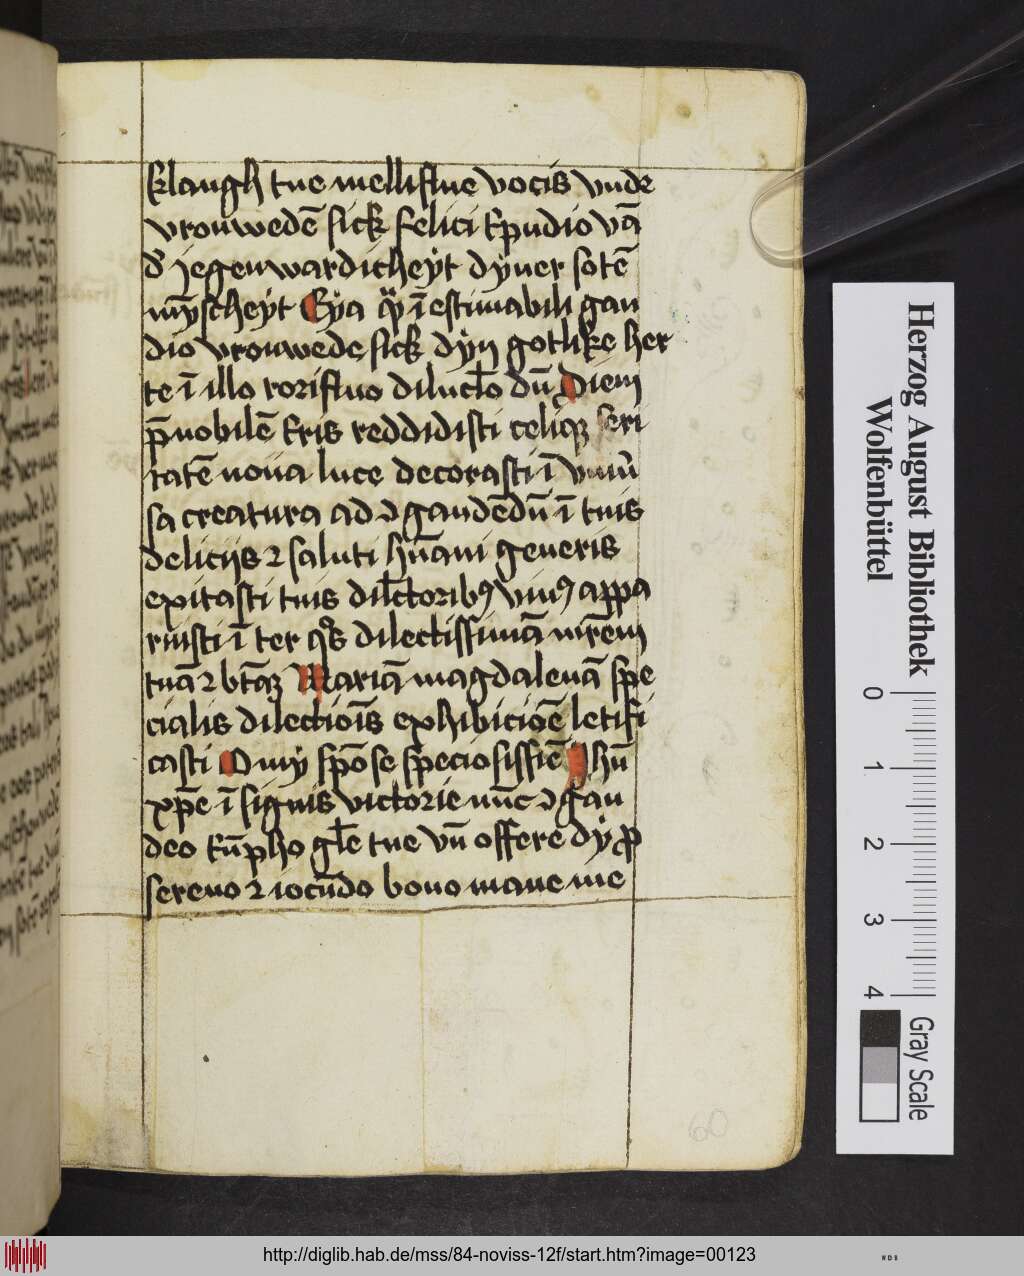 klangh tue melliflue vocis vnde
vrouwedē sick felici tͥpudio vā
dʼ jegenwardicheyt dyner sotē
mȳscheyt Eya qͣ̄ ī estimabili gau
dio vrouwede sick dyn gotlike her
te ī illo rorifluo diluclo dū Diem
p̄nobilē tͥris reddidisti celiqꝫ seri
tatē noua luce decorasti ī
sa creatura ad ↄgaudēdū ī tuis
deliciis ⁊ saluti hūani generis
expitasti tuis dilc̄toribꝰ appa
ruisti ī ter qͦs dilectissimā mr̄em
tuā ⁊ btāꝫ Mariā magdalenā spe
cialis dilectiōis exhibiciōe letifi
casti O my spōse speciosissīe Jhū
xp̄e ī signis victorie nūc ↄgau
deo tͥūpho gl̄e tue vn̄ offere dy ꝓ
sereno ⁊ iocūdo bono mane me
Herzog August Bibliothek
Wolfenbüttel
0 1 2 3 4
Gray Scale
60
http://diglib.hab.de/mss/84-noviss-12f/start.htm?image=00123